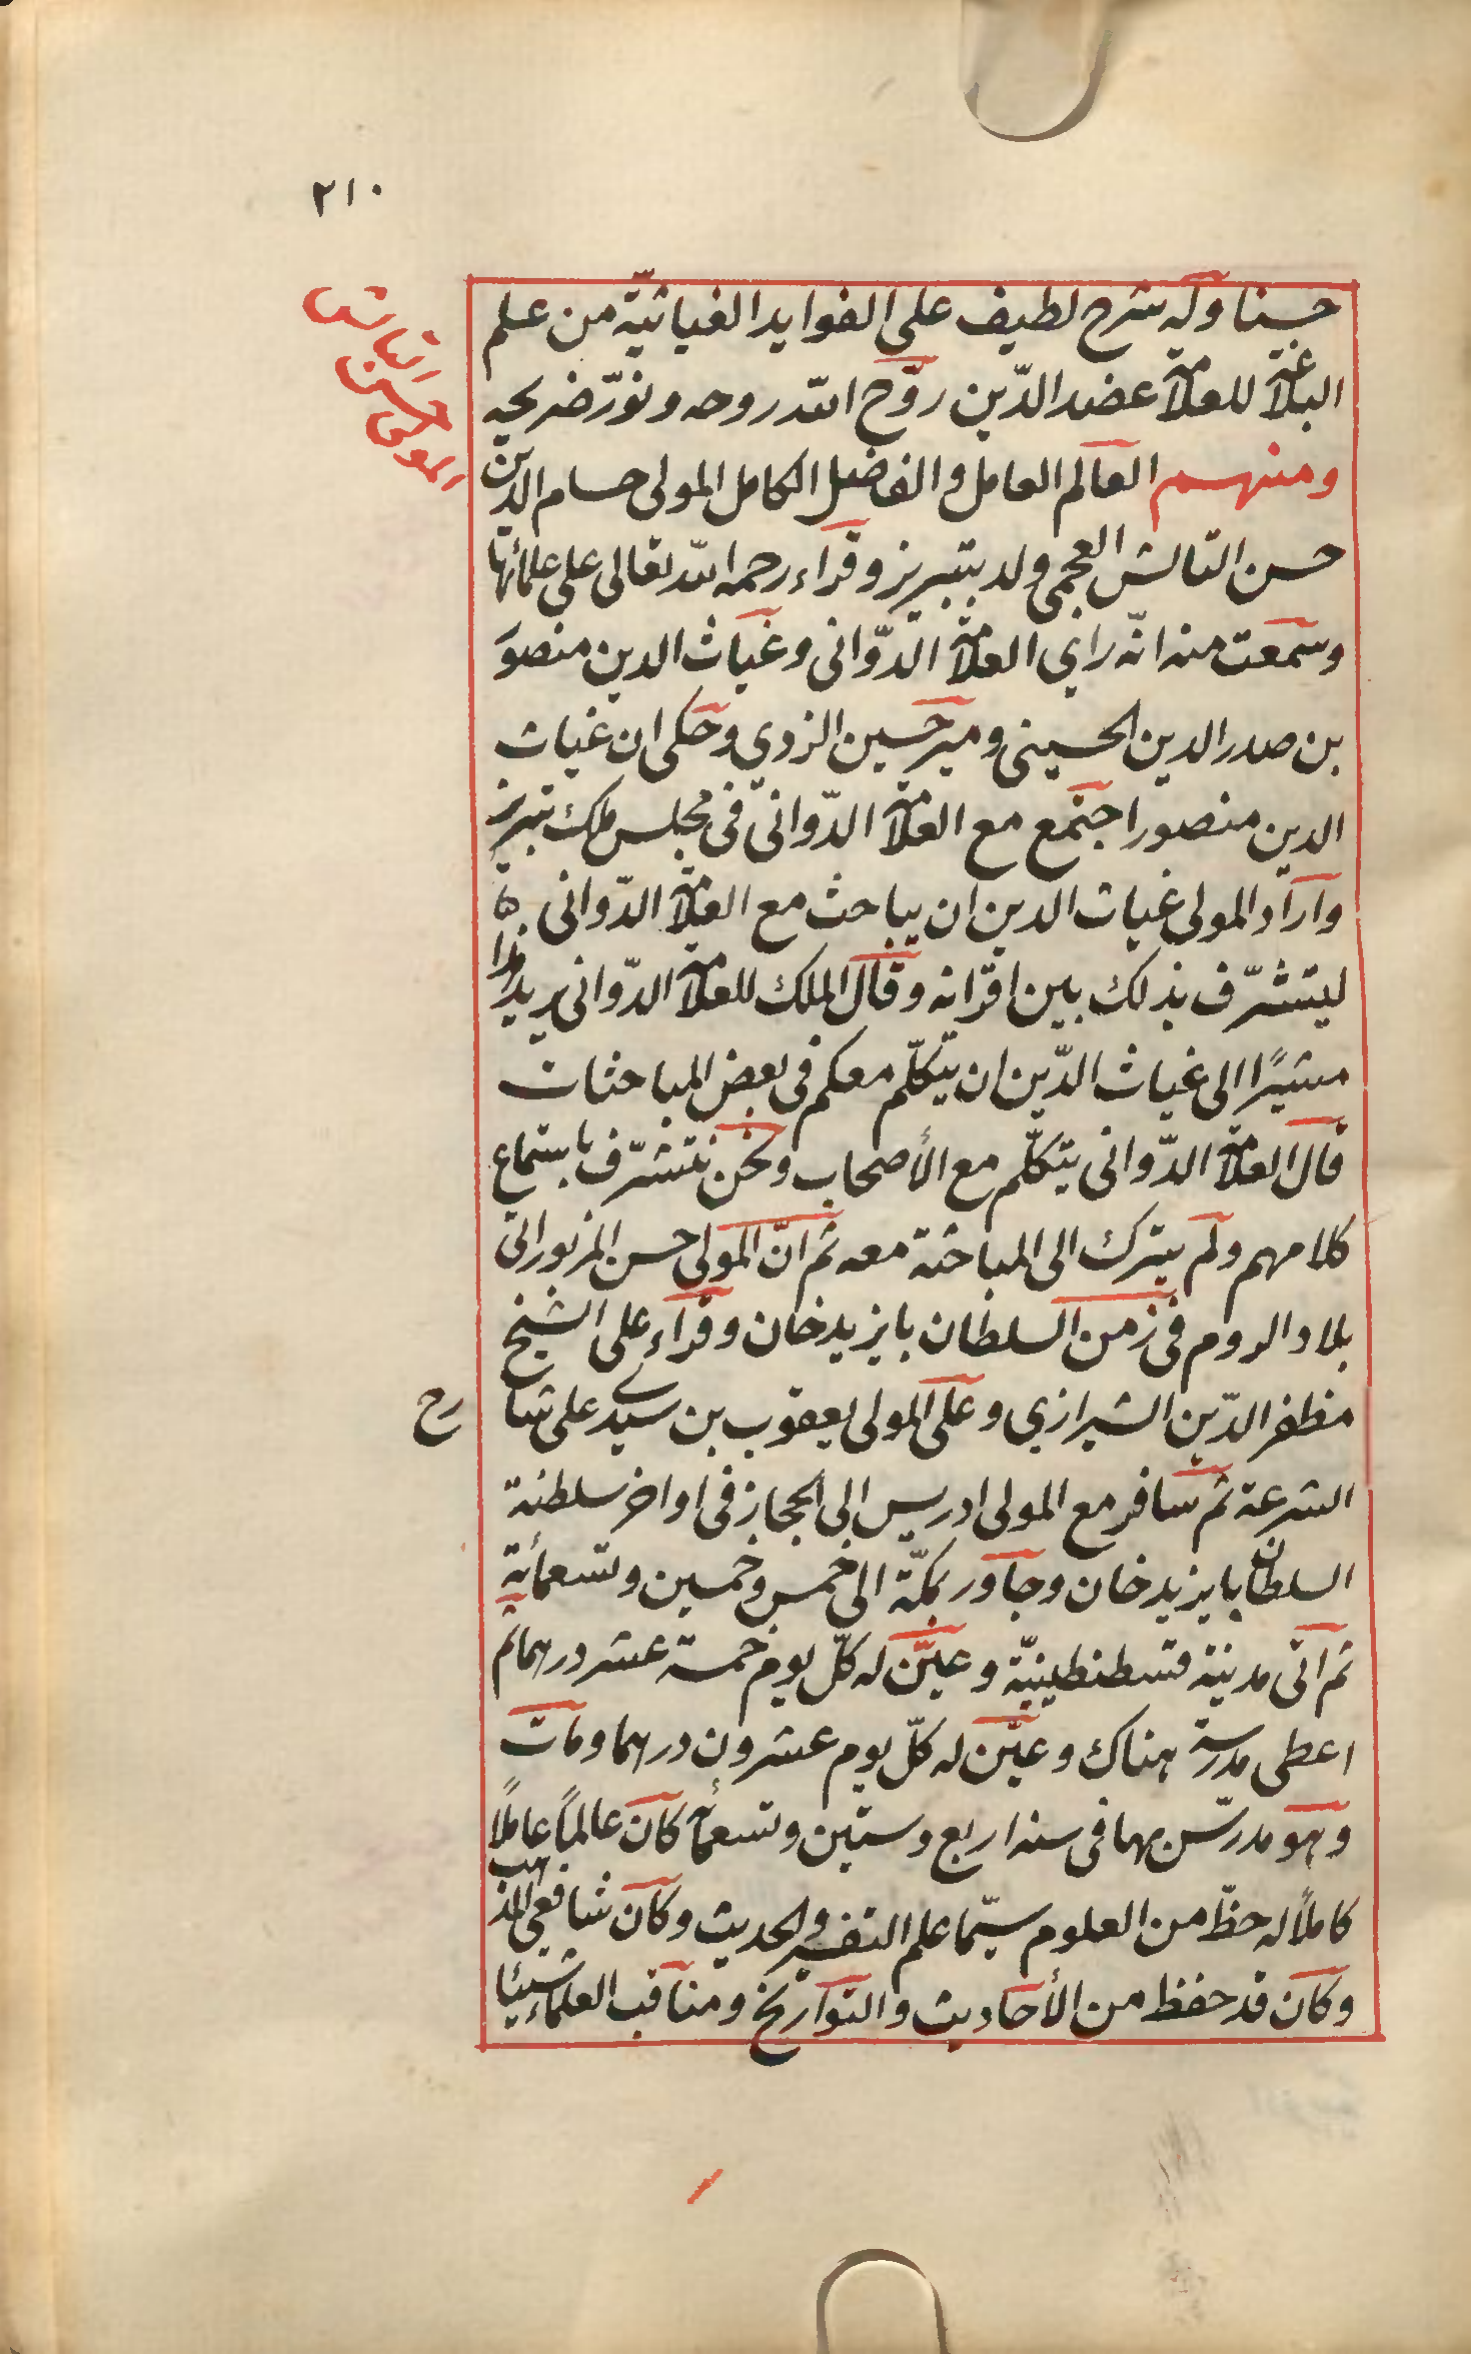 ٢١٠
المولى حسن التالش
حسنا وله شرح لطيف على الفوايد الغياثيّة من علم
البلاغة للعلامة عضد الدّين روّح الله روحه ونوّر ضريحه
ومنهم العالم العامل والفاضل الكامل المولى حسام الدين
حسن التالش العجمي ولد بتبريز وقراء رحمه الله تعالى على علمائها
وسمعت منه انّه راي العلامة الدّوانى وغياث الدين منصور
بن صدر الدين الحسينى ومير حسين الزدي وحكى ان غياث
الدين منصور اجتمع مع العلامة الدّوانىّ فى مجلس ملك تبريز
واراد المولى غياث الدين ان يباحث مع العلامة الدّوانى
ليتشرّف بذلك بين اقرانه وقال الملك للعلامة الدّوانى يريد هذا
مشيرًا الى غياث الدّين ان يتكلّم معكم فى بعض المباحثات
قال العلامة الدّوانى يتكلّم مع الأصحاب ونحن نتشرّف باستماع
كلامهم ولم يترك الى المباحثة معه ثم انّ المولى حسن المزبور اتى
بلاد الروم فى زمن السلطان بايزيد خان وقراء على الشيخ
مظفر الدّين الشيرازي وعلى المولى يعقوب بن سيدى على شا
رح
الشرعة ثم سافر مع المولى ادريس الى الحجاز فى اواخر سلطنة
السلطان بايزيد خان وجاور بمكّة الى خمس وخمسين وتسعمأية
ثم اتى مدينة قسطنطينيّة وعيّن له كلّ يوم خمسة عشر درهما ثم
اعطى مدرسة هناك وعيّن له كلّ يوم عشرون درهما ومات
وهو مدرّس بها فى سنة اربع وستين وتسعمأة كان عالماً عاملًا
كاملاً له حظّ من العلوم سيّما علم التفسير والحديث وكان شافعى المذهب
وكان قد حفظ من الأحاديث والتواريخ ومناقب العلماء شيئا